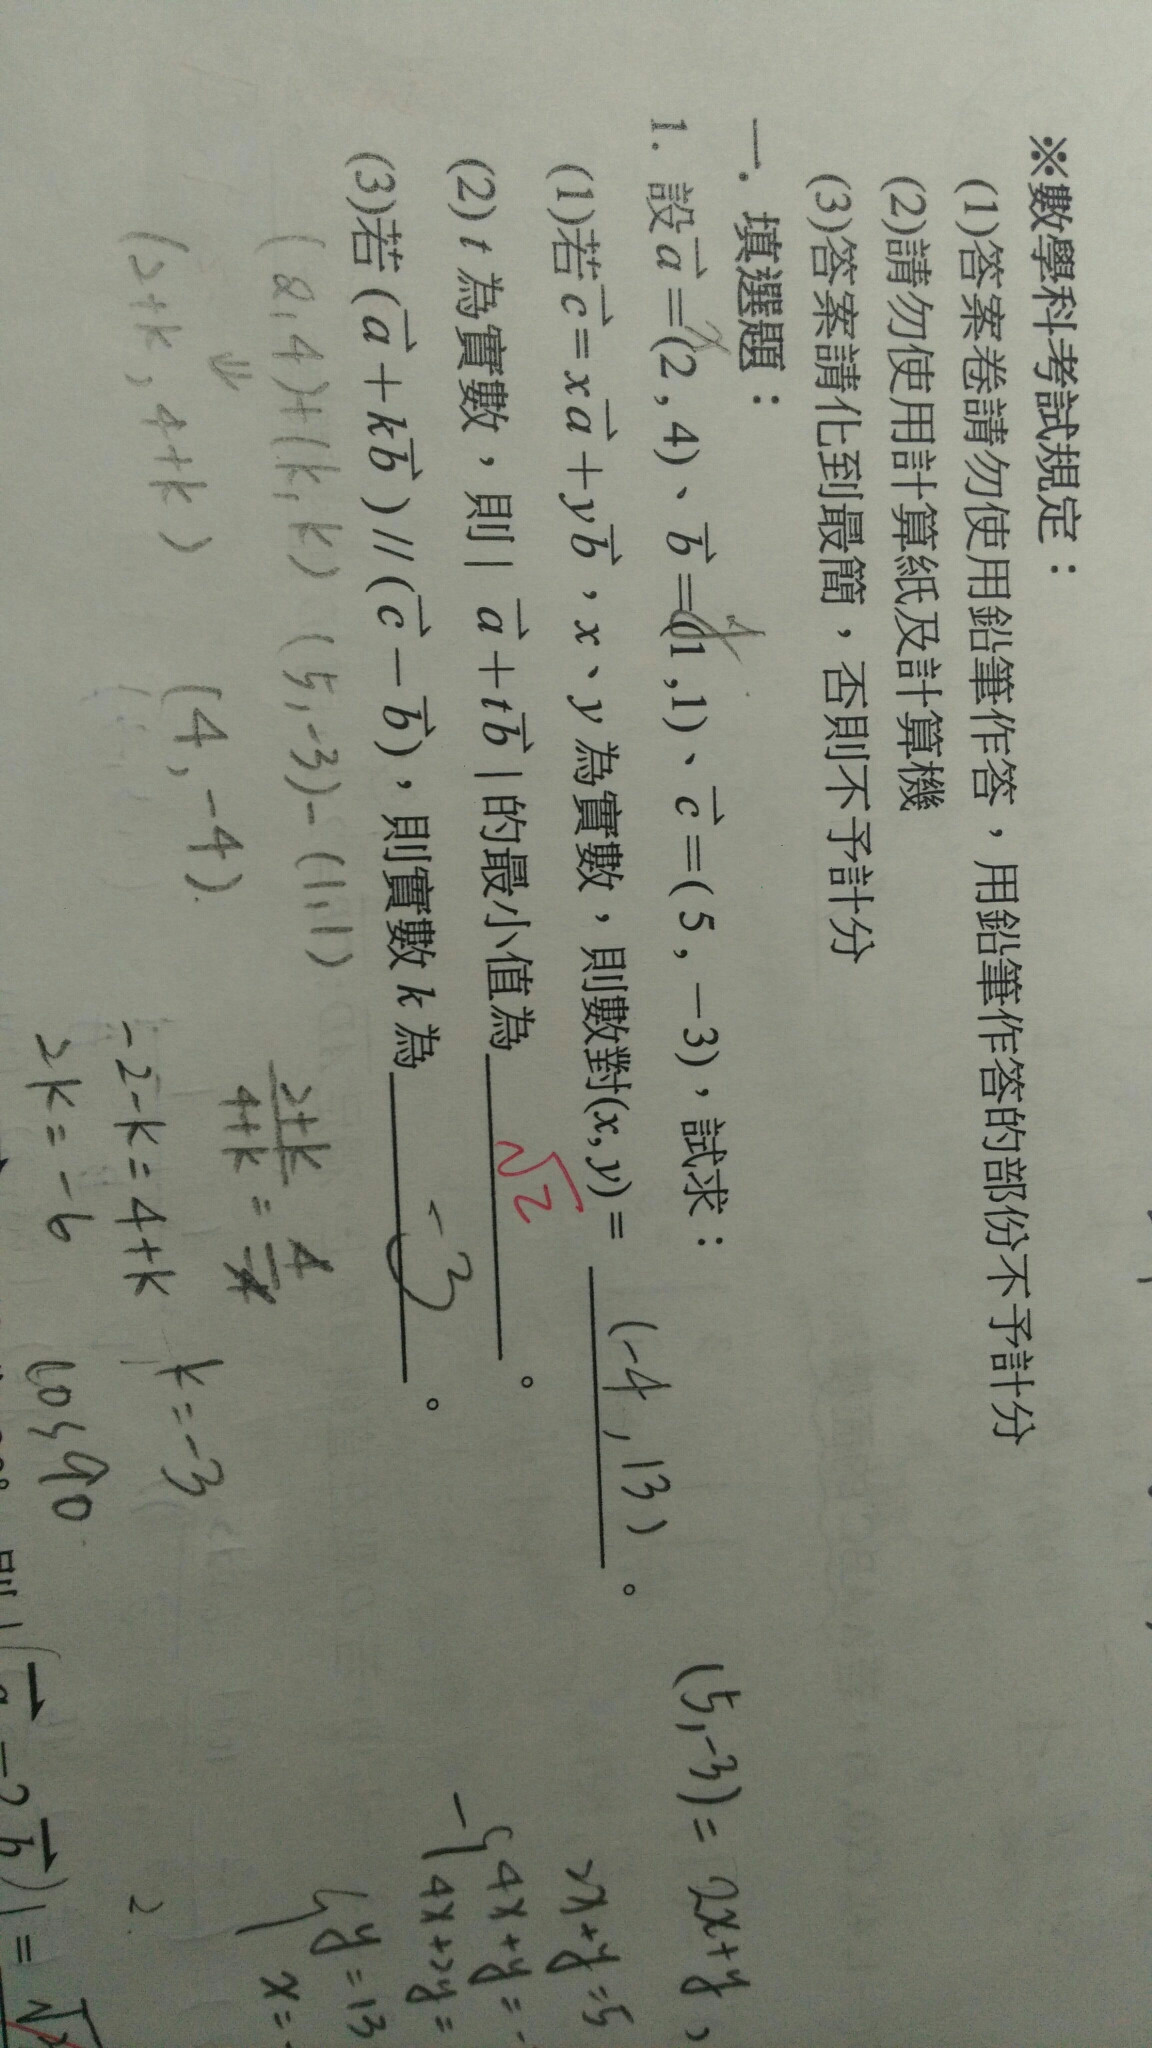 ※數學科考試規定：
(1)答案卷請勿使用鉛筆作答，用鉛筆作答的部份不予計分
(2)請勿使用計算紙及計算機
(3)答案請化到最簡，否則不予計分
一．填選題：
1. 設a=(2, 4)、b=(1,1)、c=(5, −3)，試求：
(1)若c=xa+yb，x、y為實數，則數對(x, y)= (-4, 13)。
(2) t 為實數，則| a+tb |的最小值為 √2。
(3)若(a+kb)//(c−b)，則實數k為 -3。
(5,-3)=2x+y,
2x+y=5
4x+y=
4x+2y=
y=13
x=
(2,4)+(k,k) (5,-3)-(1,1)
(2+k, 4+k) (4, -4).
2+k/4+k = 4/
-2-k=4+k k=-3
2k=-6 cos90
2.
−2b)|=√